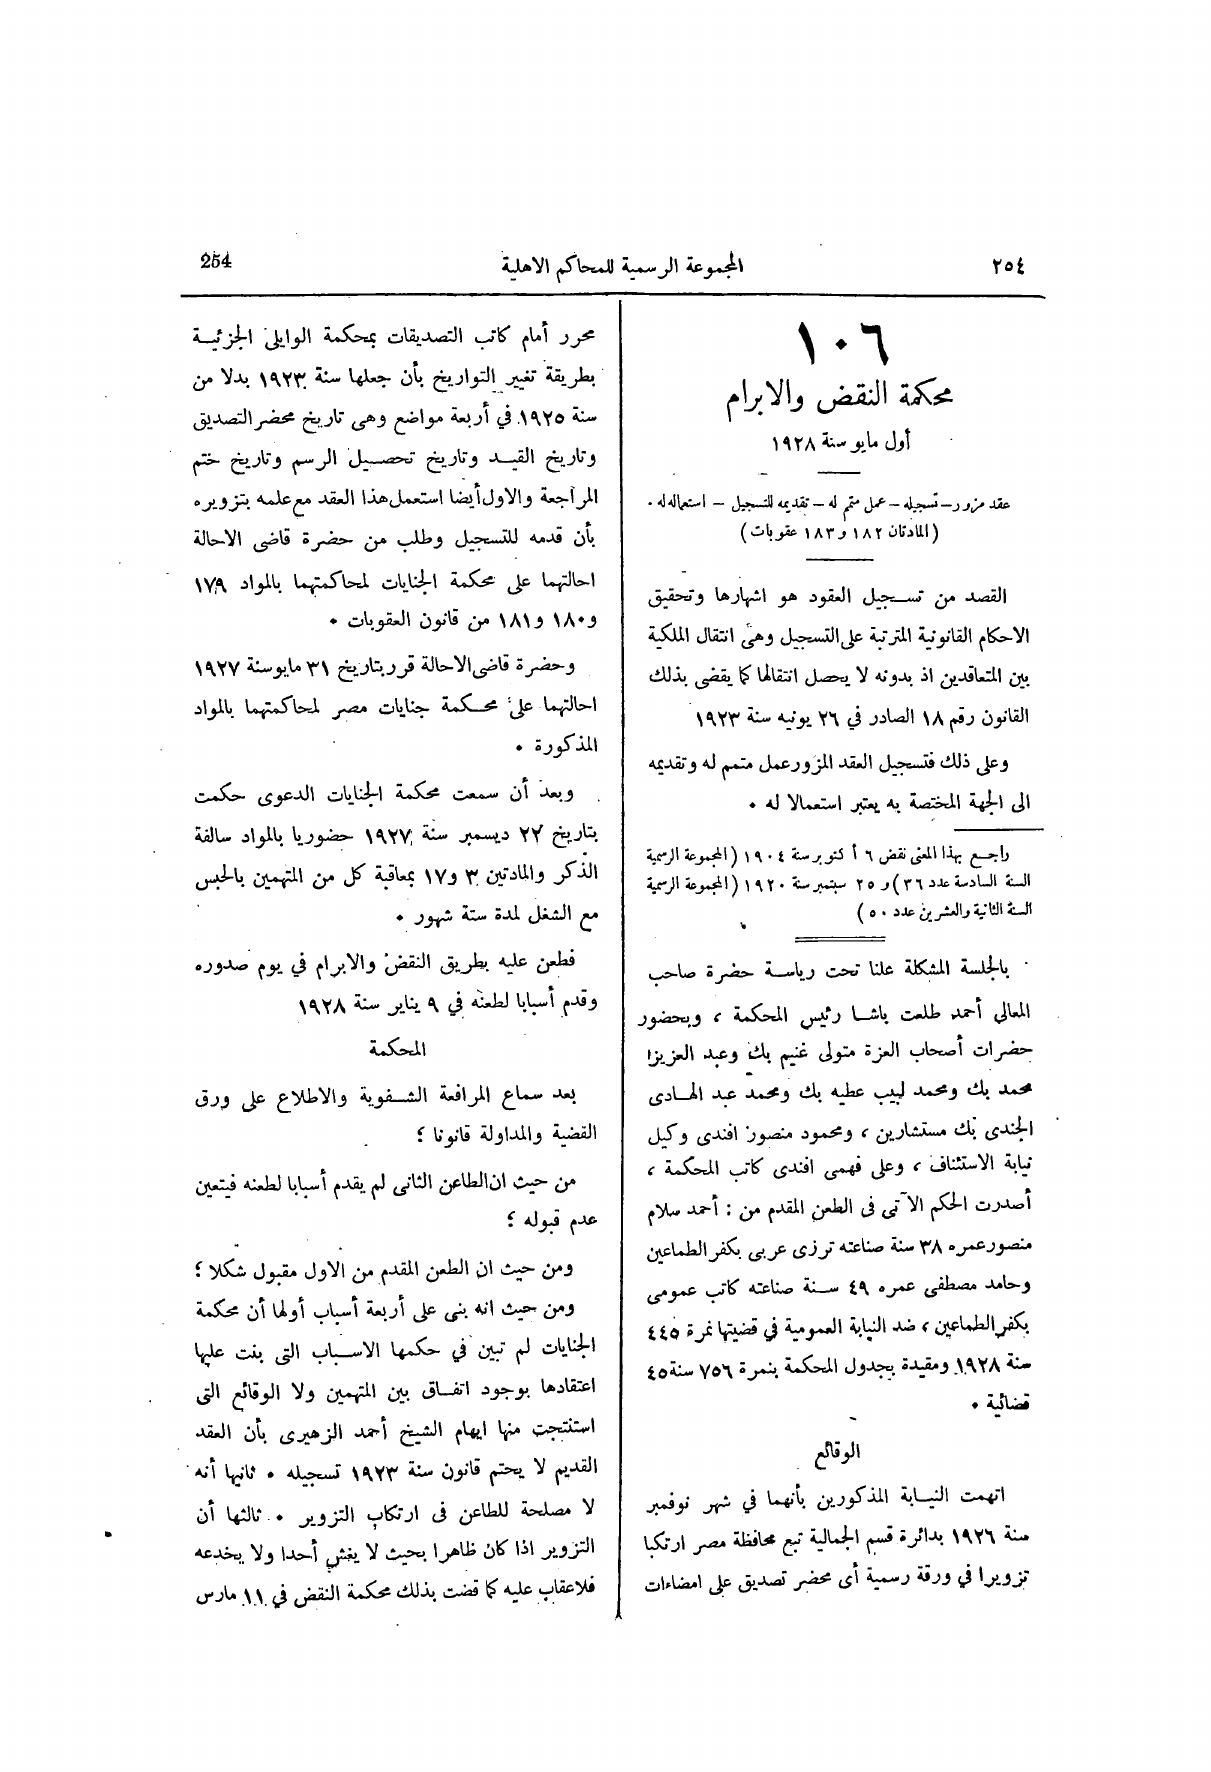 ٢٥٤
المجموعة الرسمية للمحاكم الاهلية
254
١٠٦
محكمة النقض والابرام
أول مايو سنة ١٩٢٨
عقد مزور – تسجيله – عمل متمم له – تقديمه للتسجيل – استعماله له .
( المادتان ١٨٢ و ١٨٣ عقوبات )
القصد من تسجيل العقود هو اشهارها وتحقيق
الاحكام القانونية المترتبة على التسجيل وهى انتقال الملكية
بين المتعاقدين اذ بدونه لا يحصل انتقالها كما يقضى بذلك
القانون رقم ١٨ الصادر في ٢٦ يونيه سنة ١٩٢٣
وعلى ذلك فتسجيل العقد المزور عمل متمم له وتقديمه
الى الجهة المختصة به يعتبر استعمالا له .
راجع بهذا المعنى نقض ٦ أكتوبر سنة ١٩٠٤ ( المجموعة الرسمية
السنة السادسة عدد ٣٦ ) و ٢٥ سبتمبر سنة ١٩٢٠ ( المجموعة الرسمية
السنة الثانية والعشرين عدد ٥٠ )
بالجلسة المشكلة علنا تحت رياسة حضرة صاحب
المعالي أحمد طلعت باشا رئيس المحكمة ، وبحضور
حضرات أصحاب العزة متولى غنيم بك وعبد العزيز
محمد بك ومحمد لبيب عطيه بك ومحمد عبد الهادى
الجندى بك مستشارين ، ومحمود منصور افندى وكيل
نيابة الاستئناف ، وعلى فهمى افندى كاتب المحكمة ،
أصدرت الحكم الآتى فى الطعن المقدم من : أحمد سلام
منصور عمره ٣٨ سنة صناعته ترزى عربى بكفر الطماعين
وحامد مصطفى عمره ٤٩ سنة صناعته كاتب عمومى
بكفر الطماعين ، ضد النيابة العمومية في قضيتها نمرة ٤٤٥
سنة ١٩٢٨ ومقيدة بجدول المحكمة بنمرة ٧٥٦ سنة ٤٥
قضائية .
الوقائع
اتهمت النيابة المذكورين بأنهما في شهر نوفمبر
سنة ١٩٢٦ بدائرة قسم الجمالية تبع محافظة مصر ارتكبا
تزويرا في ورقة رسمية أى محضر تصديق على امضاءات
محرر أمام كاتب التصديقات بمحكمة الوايلى الجزئية
بطريقة تغيير التواريخ بأن جعلها سنة ١٩٢٣ بدلا من
سنة ١٩٢٥ في أربعة مواضع وهى تاريخ محضر التصديق
وتاريخ القيد وتاريخ تحصيل الرسم وتاريخ ختم
المراجعة والاول أيضا استعمل هذا العقد مع علمه بتزويره
بأن قدمه للتسجيل وطلب من حضرة قاضى الاحالة
احالتهما على محكمة الجنايات لمحاكمتهما بالمواد ١٧٩
و ١٨٠ و ١٨١ من قانون العقوبات .
وحضرة قاضى الاحالة قرر بتاريخ ٣١ مايو سنة ١٩٢٧
احالتهما على محكمة جنايات مصر لمحاكمتهما بالمواد
المذكورة .
وبعد أن سمعت محكمة الجنايات الدعوى حكمت
بتاريخ ٢٢ ديسمبر سنة ١٩٢٧ حضوريا بالمواد سالفة
الذكر والمادتين ٣ و ١٧ بمعاقبة كل من المتهمين بالحبس
مع الشغل لمدة ستة شهور .
فطعن عليه بطريق النقض والابرام في يوم صدوره
وقدم أسبابا لطعنه في ٩ يناير سنة ١٩٢٨
المحكمة
بعد سماع المرافعة الشفوية والاطلاع على ورق
القضية والمداولة قانونا ؛
من حيث ان الطاعن الثانى لم يقدم أسبابا لطعنه فيتعين
عدم قبوله ؛
ومن حيث ان الطعن المقدم من الاول مقبول شكلا ؛
ومن حيث انه بنى على أربعة أسباب أولها أن محكمة
الجنايات لم تبين في حكمها الاسباب التى بنت عليها
اعتقادها بوجود اتفاق بين المتهمين ولا الوقائع التى
استنتجت منها ايهام الشيخ أحمد الزهيرى بأن العقد
القديم لا يحتم قانون سنة ١٩٢٣ تسجيله . ثانيها أنه
لا مصلحة للطاعن فى ارتكاب التزوير . ثالثها أن
التزوير اذا كان ظاهرا بحيث لا يغش أحدا ولا يخدعه
فلا عقاب عليه كما قضت بذلك محكمة النقض في ١١ مارس